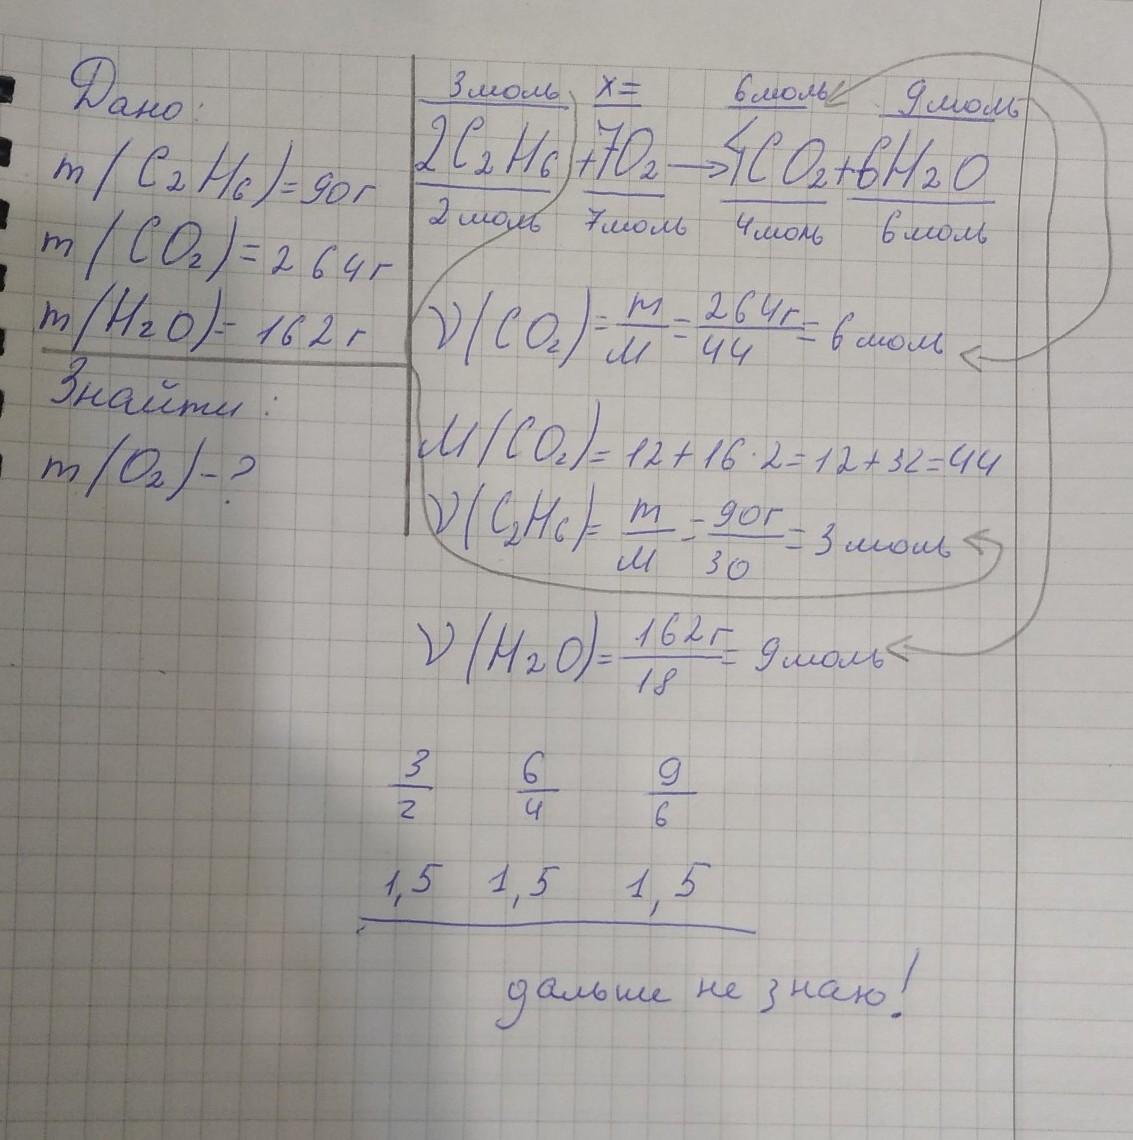 Дано:
m(C₂H₆)=90г
m(CO₂)=264г
m(H₂O)=162г
Знайти:
m(O₂)-?
3моль x= 6моль 9моль
2C₂H₆+7O₂→4CO₂+6H₂O
2моль 7моль 4моль 6моль
ν(CO₂)=m/M=264г/44=6моль
M(CO₂)=12+16·2=12+32=44
ν(C₂H₆)=m/M=90г/30=3моль
ν(H₂O)=162г/18=9моль
3/2 6/4 9/6
1,5 1,5 1,5
дальше не знаю!